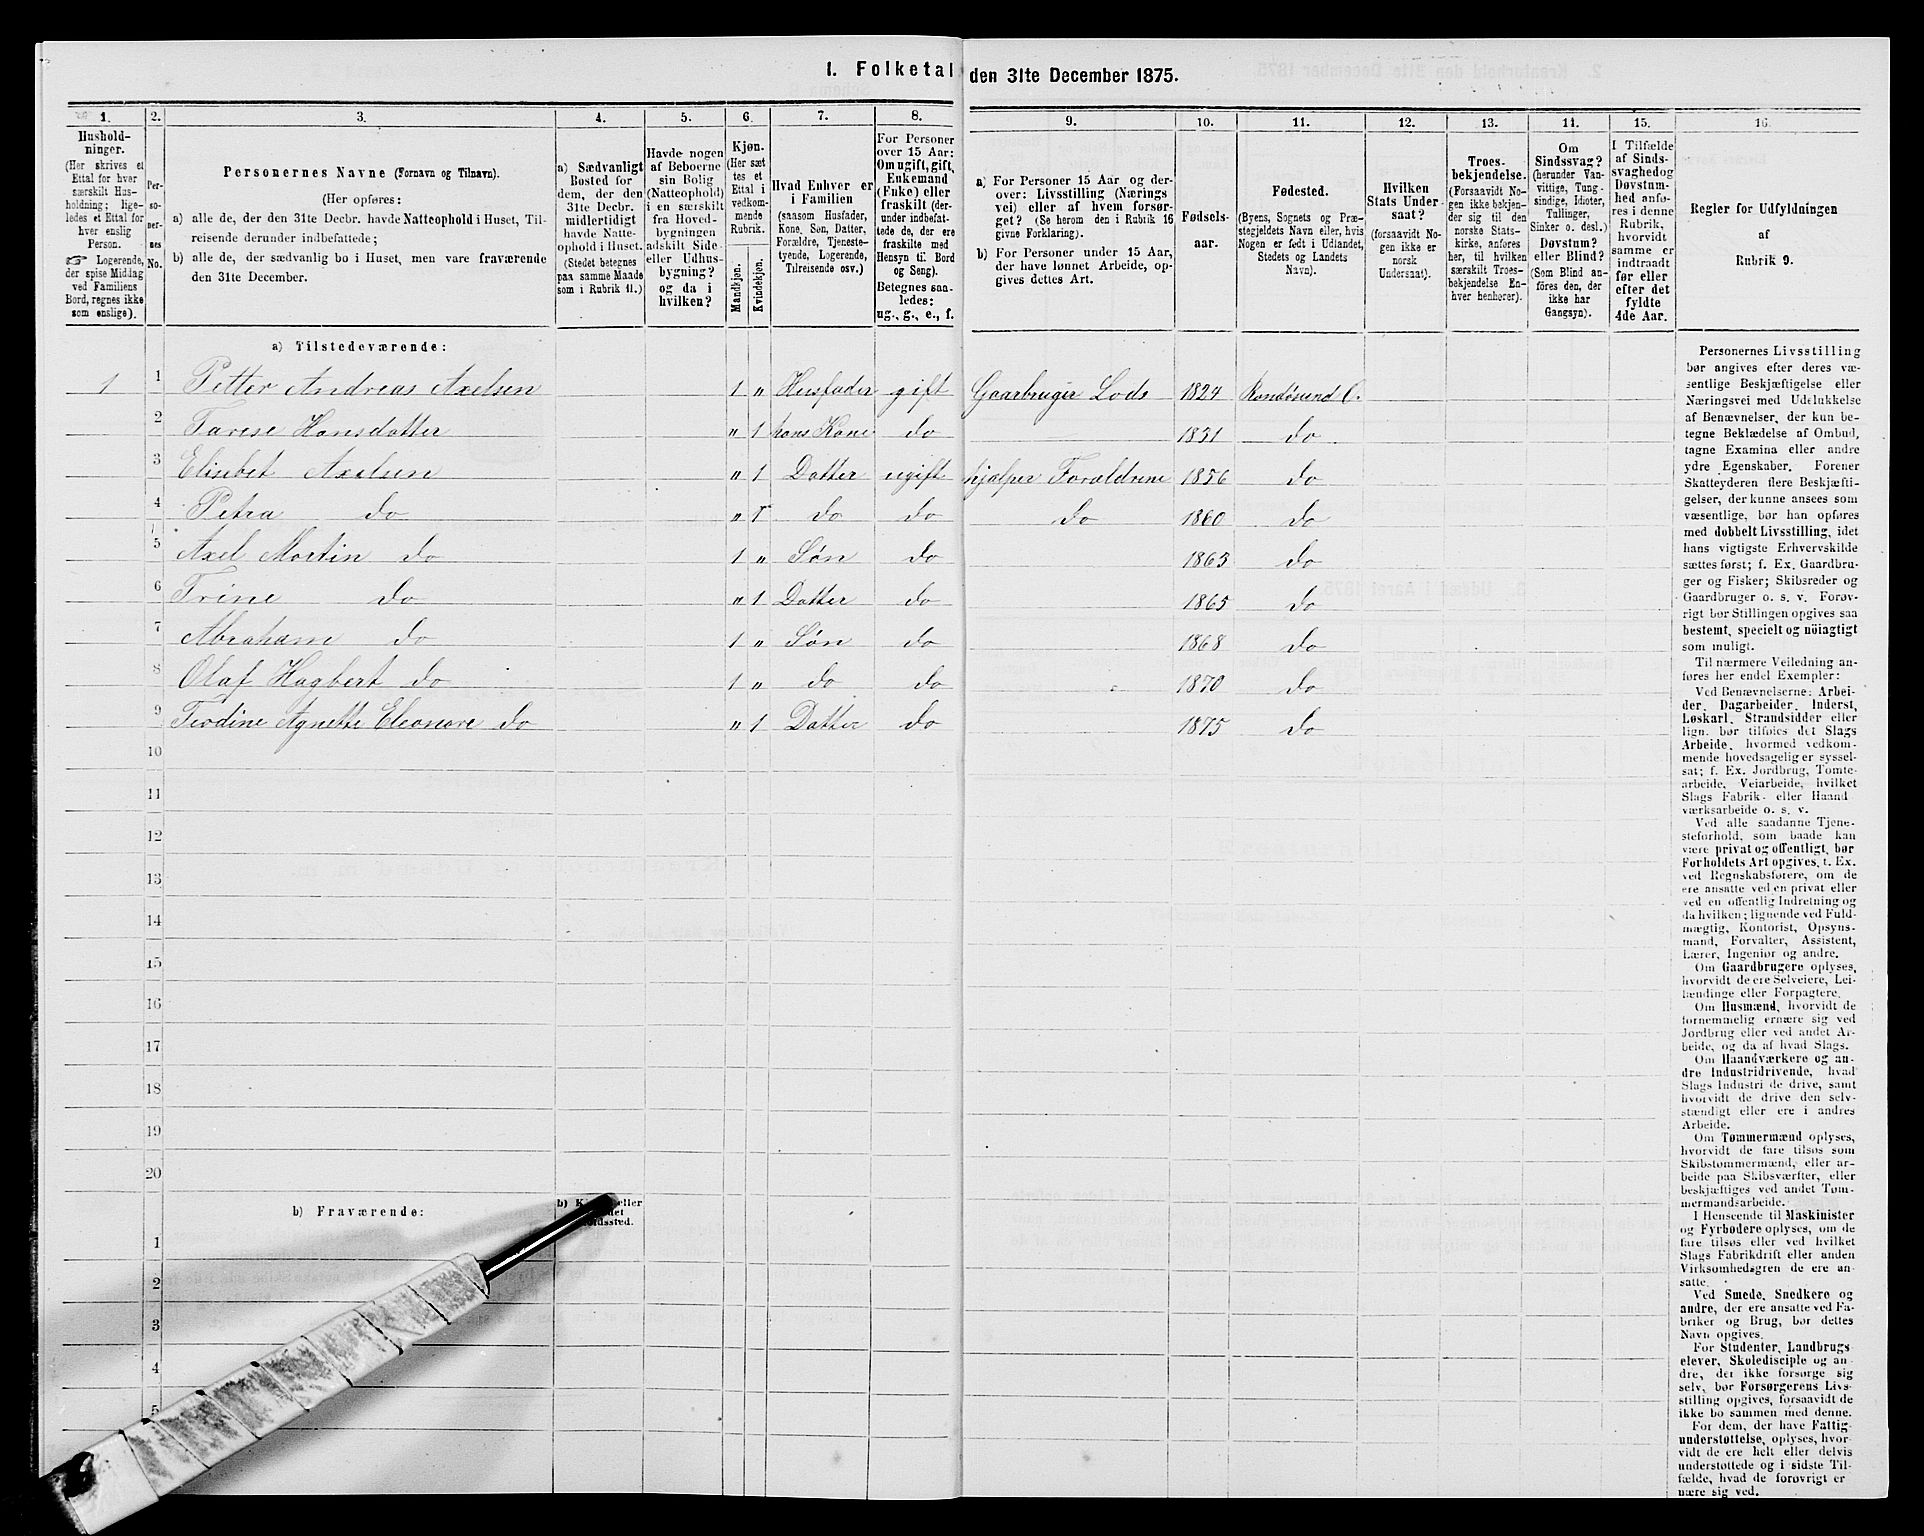 1. Folketal den 31te December 1875.
1. 2. 3. 4. 5. 6. 7. 8. 9. 10. 11. 12. 13. 11. 15. 16.
Hushold-
ninger.
(Her skrives et
Ettal for hver
særskilt Hus-
holdning; lige-
ledes et Ettal for
hver enslig
Person.
☞ Logerende,
der spise Middag
ved Familiens
Bord, regnes ikke
som enslige).
Per-
so-
ner-
nes
No.
Personernes Navne (Fornavn og Tilnavn).
(Her opføres:
a) alle de, der den 31te Decbr. havde Natteophold i Huset, Til-
reisende derunder indbefattede;
b) alle de, der sædvanlig bo i Huset, men vare fraværende
den 31te December.
a) Sædvanligt
Bosted for
dem, der den
31te Decbr.
midlertidigt
havde Natte-
ophold i Huset.
(Stedet betegnes
paa samme Maade
som i Rubrik 11.)
Havde nogen
af Beboerne
sin Bolig
(Natteophold)
i en særskilt
fra Hoved-
bygningen
adskilt Side-
eller Udhus-
bygning?
og da i
hvilken?
Kjøn.
(Her sæt
tes et
Ettal i
vedkom-
mende
Rubrik.
Mandkjøn.
Kvindekjøn.
Hvad Enhver er
i Familien
(saasom Husfader,
Kone, Søn, Datter,
Forældre, Tjeneste-
tyende, Logerende,
Tilreisende osv.)
For Personer
over 15 Aar:
Om ugift, gift,
Enkemand
(Enke) eller
fraskilt (der-
under indbefat-
tede de, der ere
fraskilte med
Hensyn til Bord
og Seng).
Betegnes saa-
ledes:
ug., g., e., f.
a) For Personer 15 Aar og der-
over: Livsstilling (Nærings
vei) eller af hvem forsør-
get? (Se herom den i Rubrik 16
givne Forklaring).
b) For Personer under 15 Aar,
der have lønnet Arbeide, op-
gives dettes Art.
Fødsels-
aar.
Fødested.
(Byens, Sognets og Præ-
stegjeldets Navn eller, hvis
Nogen er født i Udlandet,
Stedets og Landets
Navn).
Hvilken
Stats Under-
saat?
(forsaavidt No-
gen ikke er
norsk
Undersaat).
Troes-
bekjendelse.
(Forsaavidt No-
gen ikke bekjen-
der sig til den
norske Stats-
kirke, anføres
her, til hvilken
særskilt Troes-
bekjendelse En-
hver henhører).
Om
Sindssvag?
(herunder Van-
vittige, Tung-
sindige, Idioter,
Tullinger,
Sinker o. desl.)
Døvstum?
eller Blind?
(Som Blind an-
føres den, der
ikke har
Gangsyn).
I Tilfælde
af Sinds-
svaghed og
Døvstum-
hed anfø-
res i denne
Rubrik,
hvorvidt
samme er
indtraadt
før eller
efter det
fyldte
4de Aar.
Regler for Udfyldningen
af
Rubrik 9.
a) Tilstedeværende:
1 1 Petter Andreas Axelsen 1 „ Husfader gift Gaarbruger Lods 1824 Randøsund O.
2 Tarese Hansdatter „ 1 hans Kone do 1831 do
3 Elisebet Axelsen „ 1 Datter ugift hjælper Forældrene 1856 do
4 Petra do „ 1 do do do 1860 do
5 Axel Martin do 1 „ Søn do 1863 do
6 Trine do „ 1 Datter do 1865 do
7 Abraham do 1 „ Søn do 1868 do
8 Olaf Hagbert do 1 „ do do 1870 do
9 Teodine Agnette Eleonore do „ 1 Datter do 1875 do
10
11
12
13
14
15
16
17
18
19
20
b) Fraværende:
b) K eller
det
oldssted.
1
2
3
4
5
Personernes Livsstilling
bør angives efter deres væ-
sentlige Beskjæftigelse eller
Næringsvei med Udelukkelse
af Benævnelser, der kun be-
tegne Beklædelse af Ombud,
tagne Examina eller andre
ydre Egenskaber. Forener
Skatteyderen flere Beskjæfti-
gelser, der kunne ansees som
væsentlige, bør han opføres
med dobbelt Livsstilling, idet
hans vigtigste Erhvervskilde
sættes først; f. Ex. Gaardbru-
ger og Fisker; Skibsreder og
Gaardbruger o. s. v. Forøv-
rigt bør Stillingen opgives saa
bestemt, specielt og nöiagtigt
som muligt.
Til nærmere Veiledning an-
føres her endel Exempler:
Ved Benævnelserne: Arbei-
der, Dagarbeider, Inderst,
Løskarl, Strandsidder eller
lign. bør tilføies det Slags
Arbeide, hvormed vedkom-
mende hovedsagelig er syssel-
sat; f. Ex. Jordbrug, Tomte-
arbeide, Veiarbeide, hvilket
Slags Fabrik- eller Haand
værksarbeide o. s. v.
Ved alle saadanne Tjene-
steforhold, som baade kan
være privat og offentligt, bør
Forholdets Art opgives, t. Ex.
ved Regnskabsførere, om de
ere ansatte ved en privat eller
ved en offentlig Indretning og
da hvilken; lignende ved Fuld-
mægtig, Kontorist, Opsyns-
mand, Forvalter, Assistent,
Lærer, Ingeniør og andre.
Om Gaardbrugere oplyses,
hvorvidt de ere Selveiere, Lei-
lændinge eller Forpagtere.
Om Husmænd, hvorvidt de
fornemmelig ernære sig ved
Jordbrug eller ved andet Ar-
beide, og da af hvad Slags.
Om Haandværkere og an-
dre Industridrivende, hvad
Slags Industri de drive, samt
hvorvidt de drive den selv-
stændigt eller ere i andres
Arbeide.
Om Tømmermænd oplyses,
hvorvidt de fare tilsøs som
Skibstømmermænd, eller ar-
beide paa Skibsværfter, eller
beskjæftiges ved andet Tøm-
mermandsarbeide.
I Henseende til Maskinister
og Fyrbødere oplyses, om de
fare tilsøs eller ved hvilket
Slags Fabrikdrift eller anden
Virksomhedsgren de ere an-
satte.
Ved Smede, Snedkere og
andre, der ere ansatte ved Fa-
briker og Brug, bør dettes
Navn opgives.
For Studenter, Landbrugs
elever, Skoledisciple og an-
dre, der ikke forsørge sig
selv, bør Forsørgerens Livs-
stilling opgives, forsaavidt de
ikke bo sammen med denne.
For dem, der have Fattig-
understøttelse, oplyses, hvor-
vidt de ere helt eller delvis
understøttede og i sidste Til-
fælde, hvad de forøvrigt er
nære sig ved.